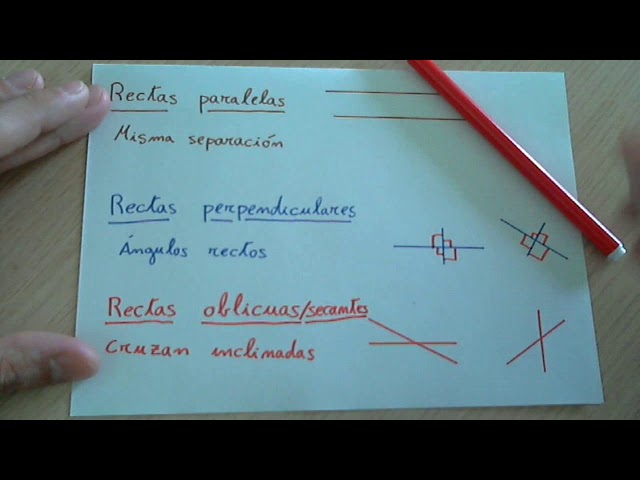 Rectas paralelas
Misma separación
Rectas perpendiculares
Ángulos rectos
Rectas oblicuas/secantes
Cruzan inclinadas